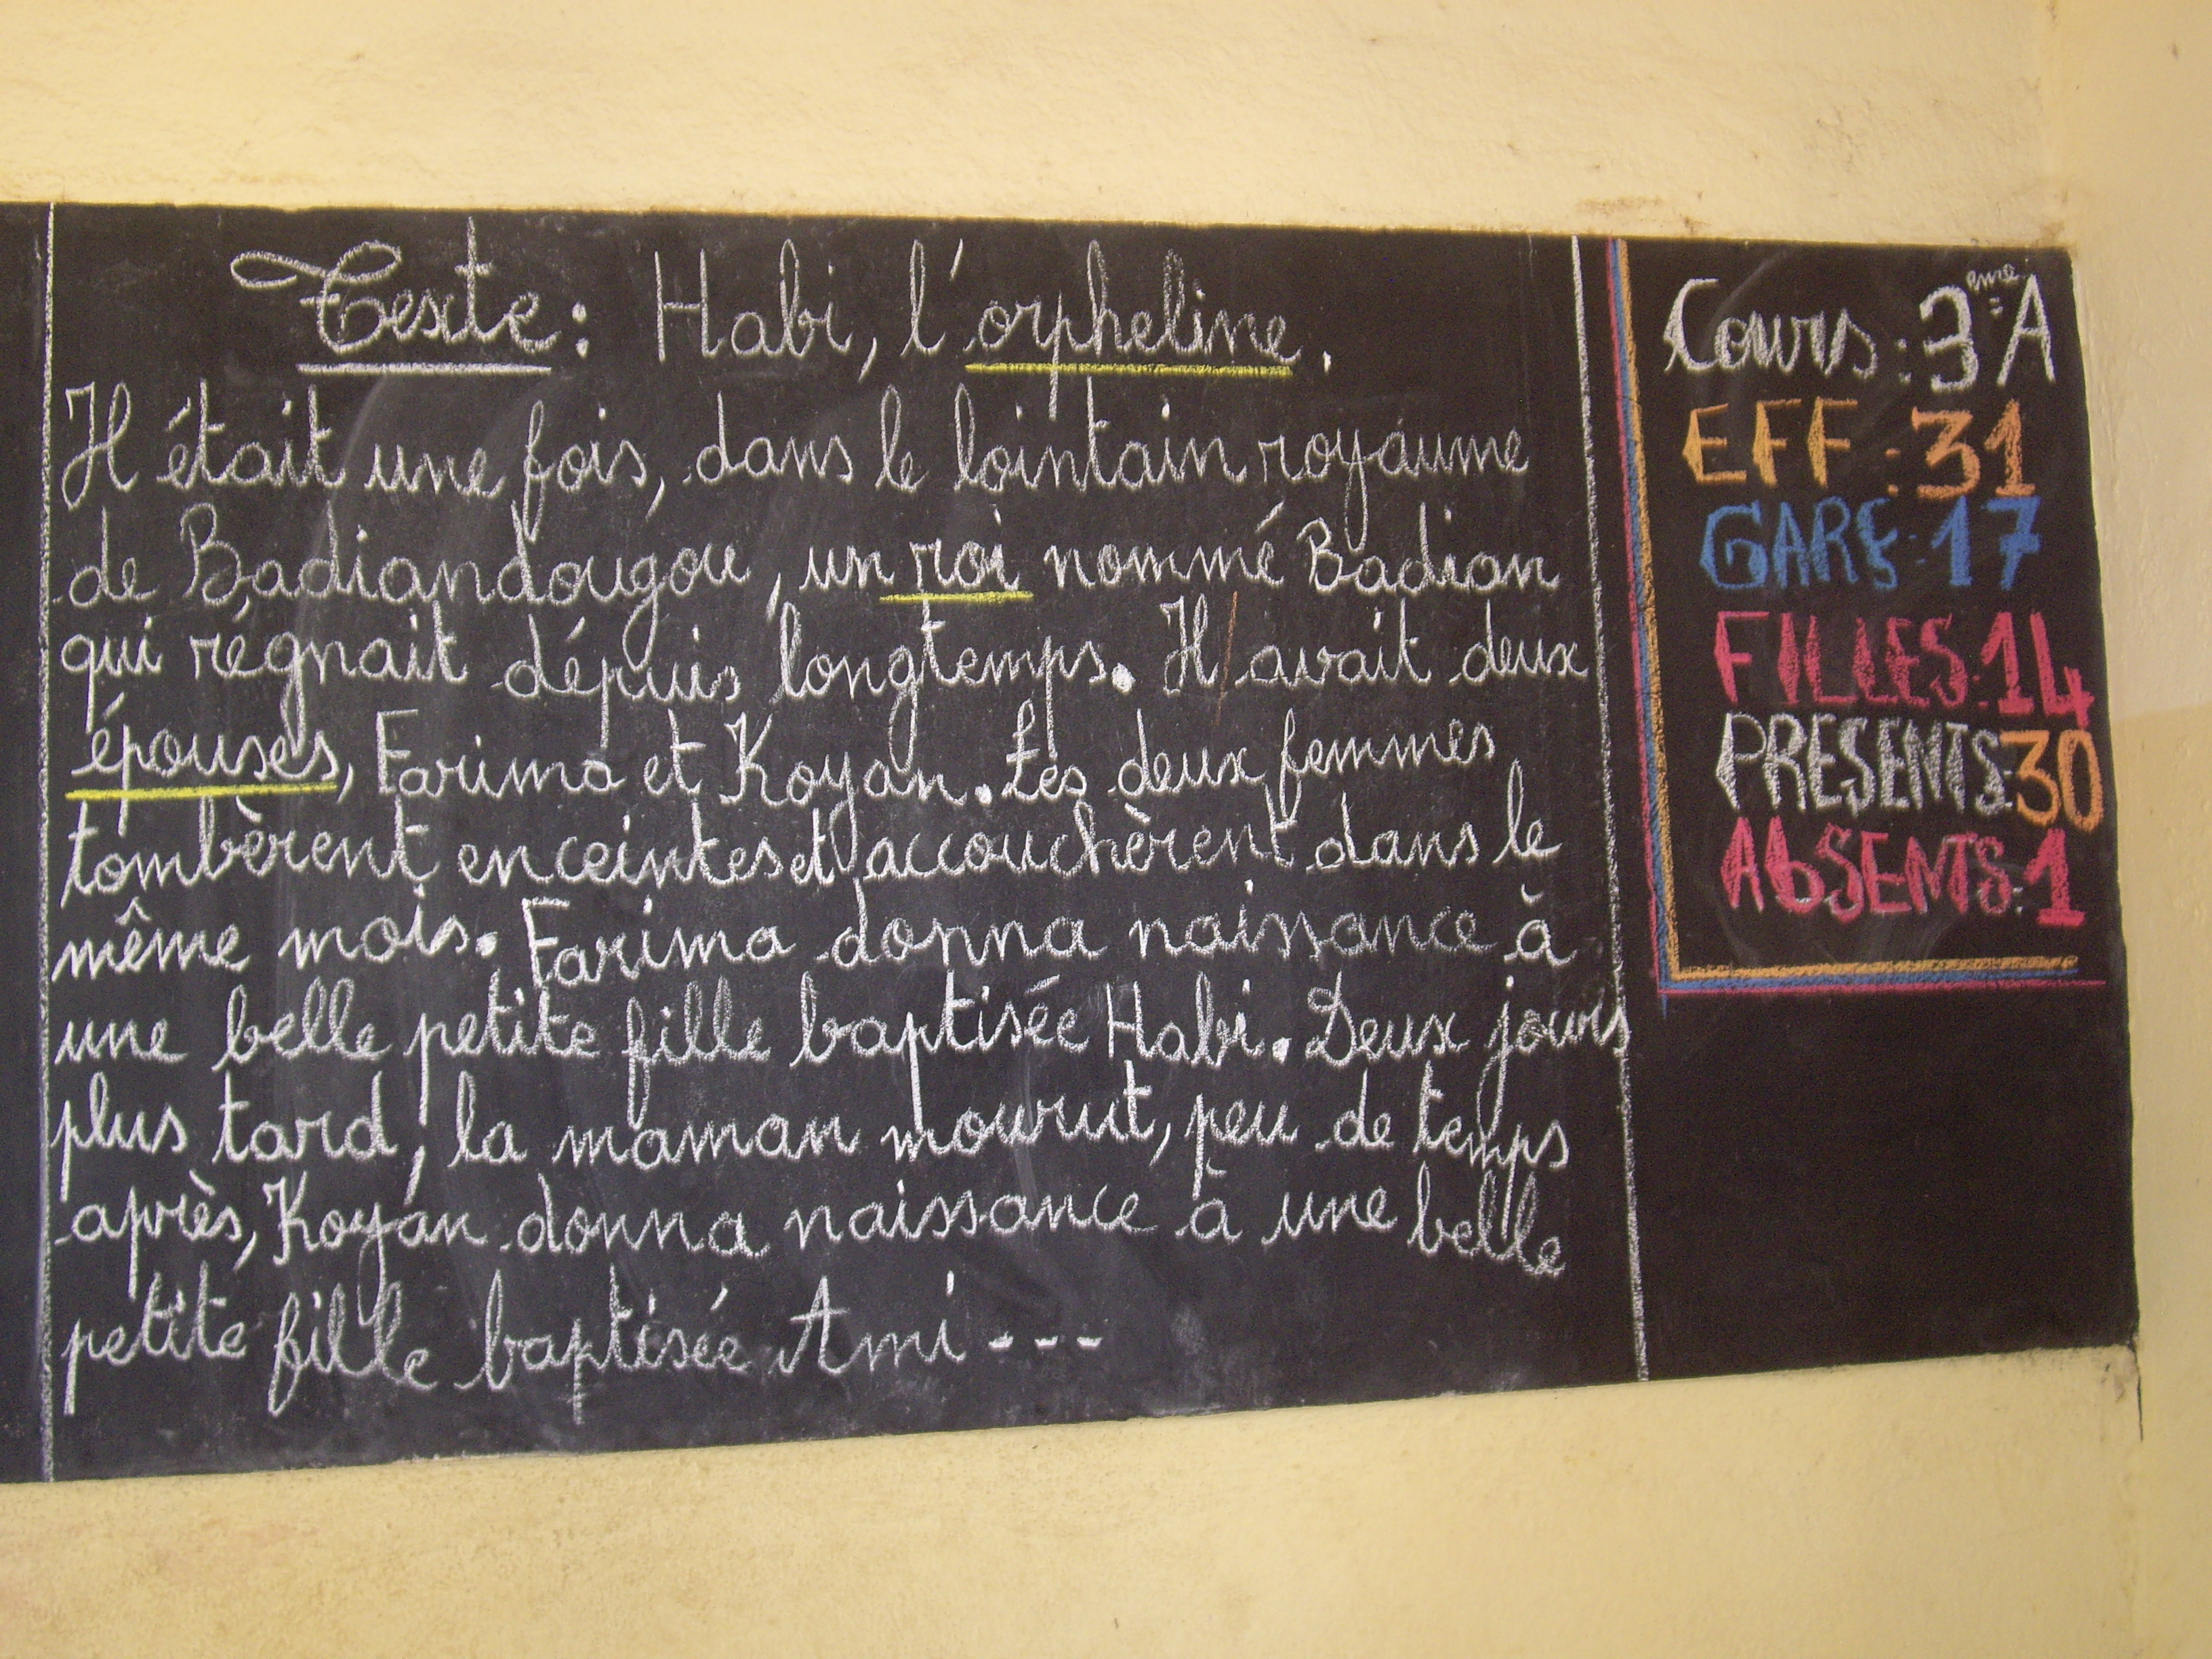 Texte : Habi, l'orpheline.
Il était une fois, dans le lointain royaume
de Badiandougou, un roi nommé Badian
qui régnait dépuis longtemps. Il avait deux
épouses, Farima et Koyan. Les deux femmes
tombèrent enceintes et accouchèrent dans le
même mois. Farima donna naissance à
une belle petite fille baptisée Habi. Deux jours
plus tard, la maman mourut, peu de temps
après, Koyan donna naissance à une belle
petite fille baptisée Ami ---
Cours : 3ème A
EFF : 31
GARS : 17
FILLES : 14
PRESENTS : 30
AbSENTS : 1